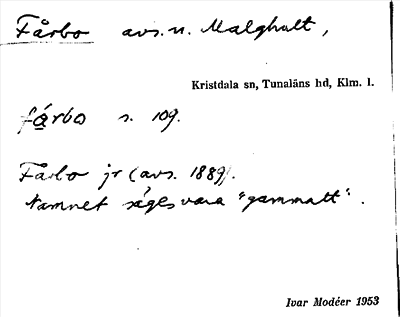 Fårbo avs. n. Malghult,
Kristdala sn, Tunaläns hd, Klm. l.
fårbo s. 109.
Fårbo jr (avs. 1889).
Namnet säges vara "gammalt".
Ivar Modéer 1953